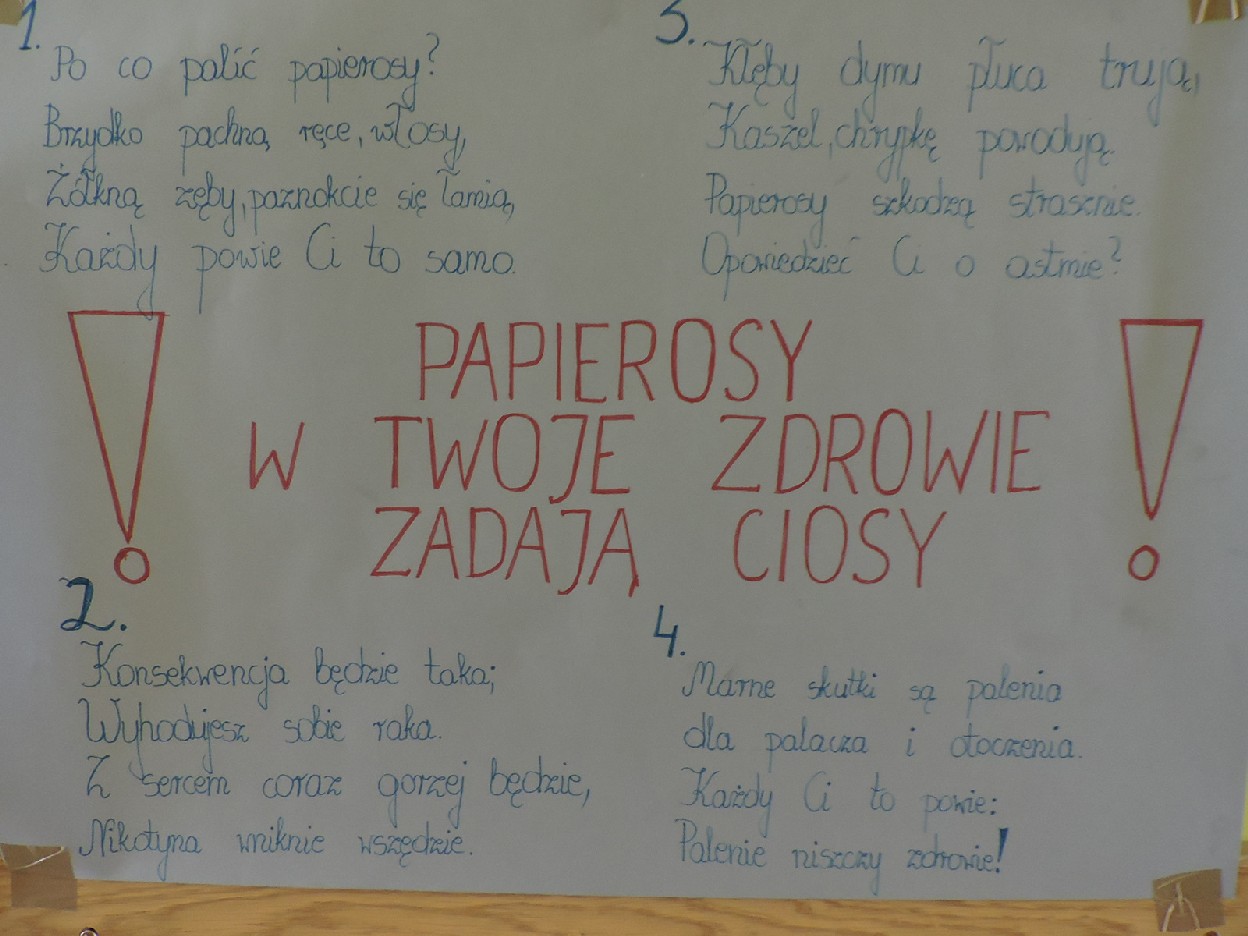 1.
Po co palić papierosy?
Brzydko pachną ręce, włosy,
Żółkną zęby, paznokcie się łamią,
Każdy powie Ci to samo.
3.
Kłęby dymu płuca trują,
Kaszel, chrypkę powodują.
Papierosy szkodzą strasznie.
Opowiedzieć Ci o astmie?
PAPIEROSY
W TWOJE ZDROWIE
ZADAJĄ CIOSY
2.
Konsekwencja będzie taka;
Wyhodujesz sobie raka.
Z sercem coraz gorzej będzie,
Nikotyna wniknie wszędzie.
4.
Marne skutki są palenia
dla palacza i otoczenia.
Każdy Ci to powie:
Palenie niszczy zdrowie!